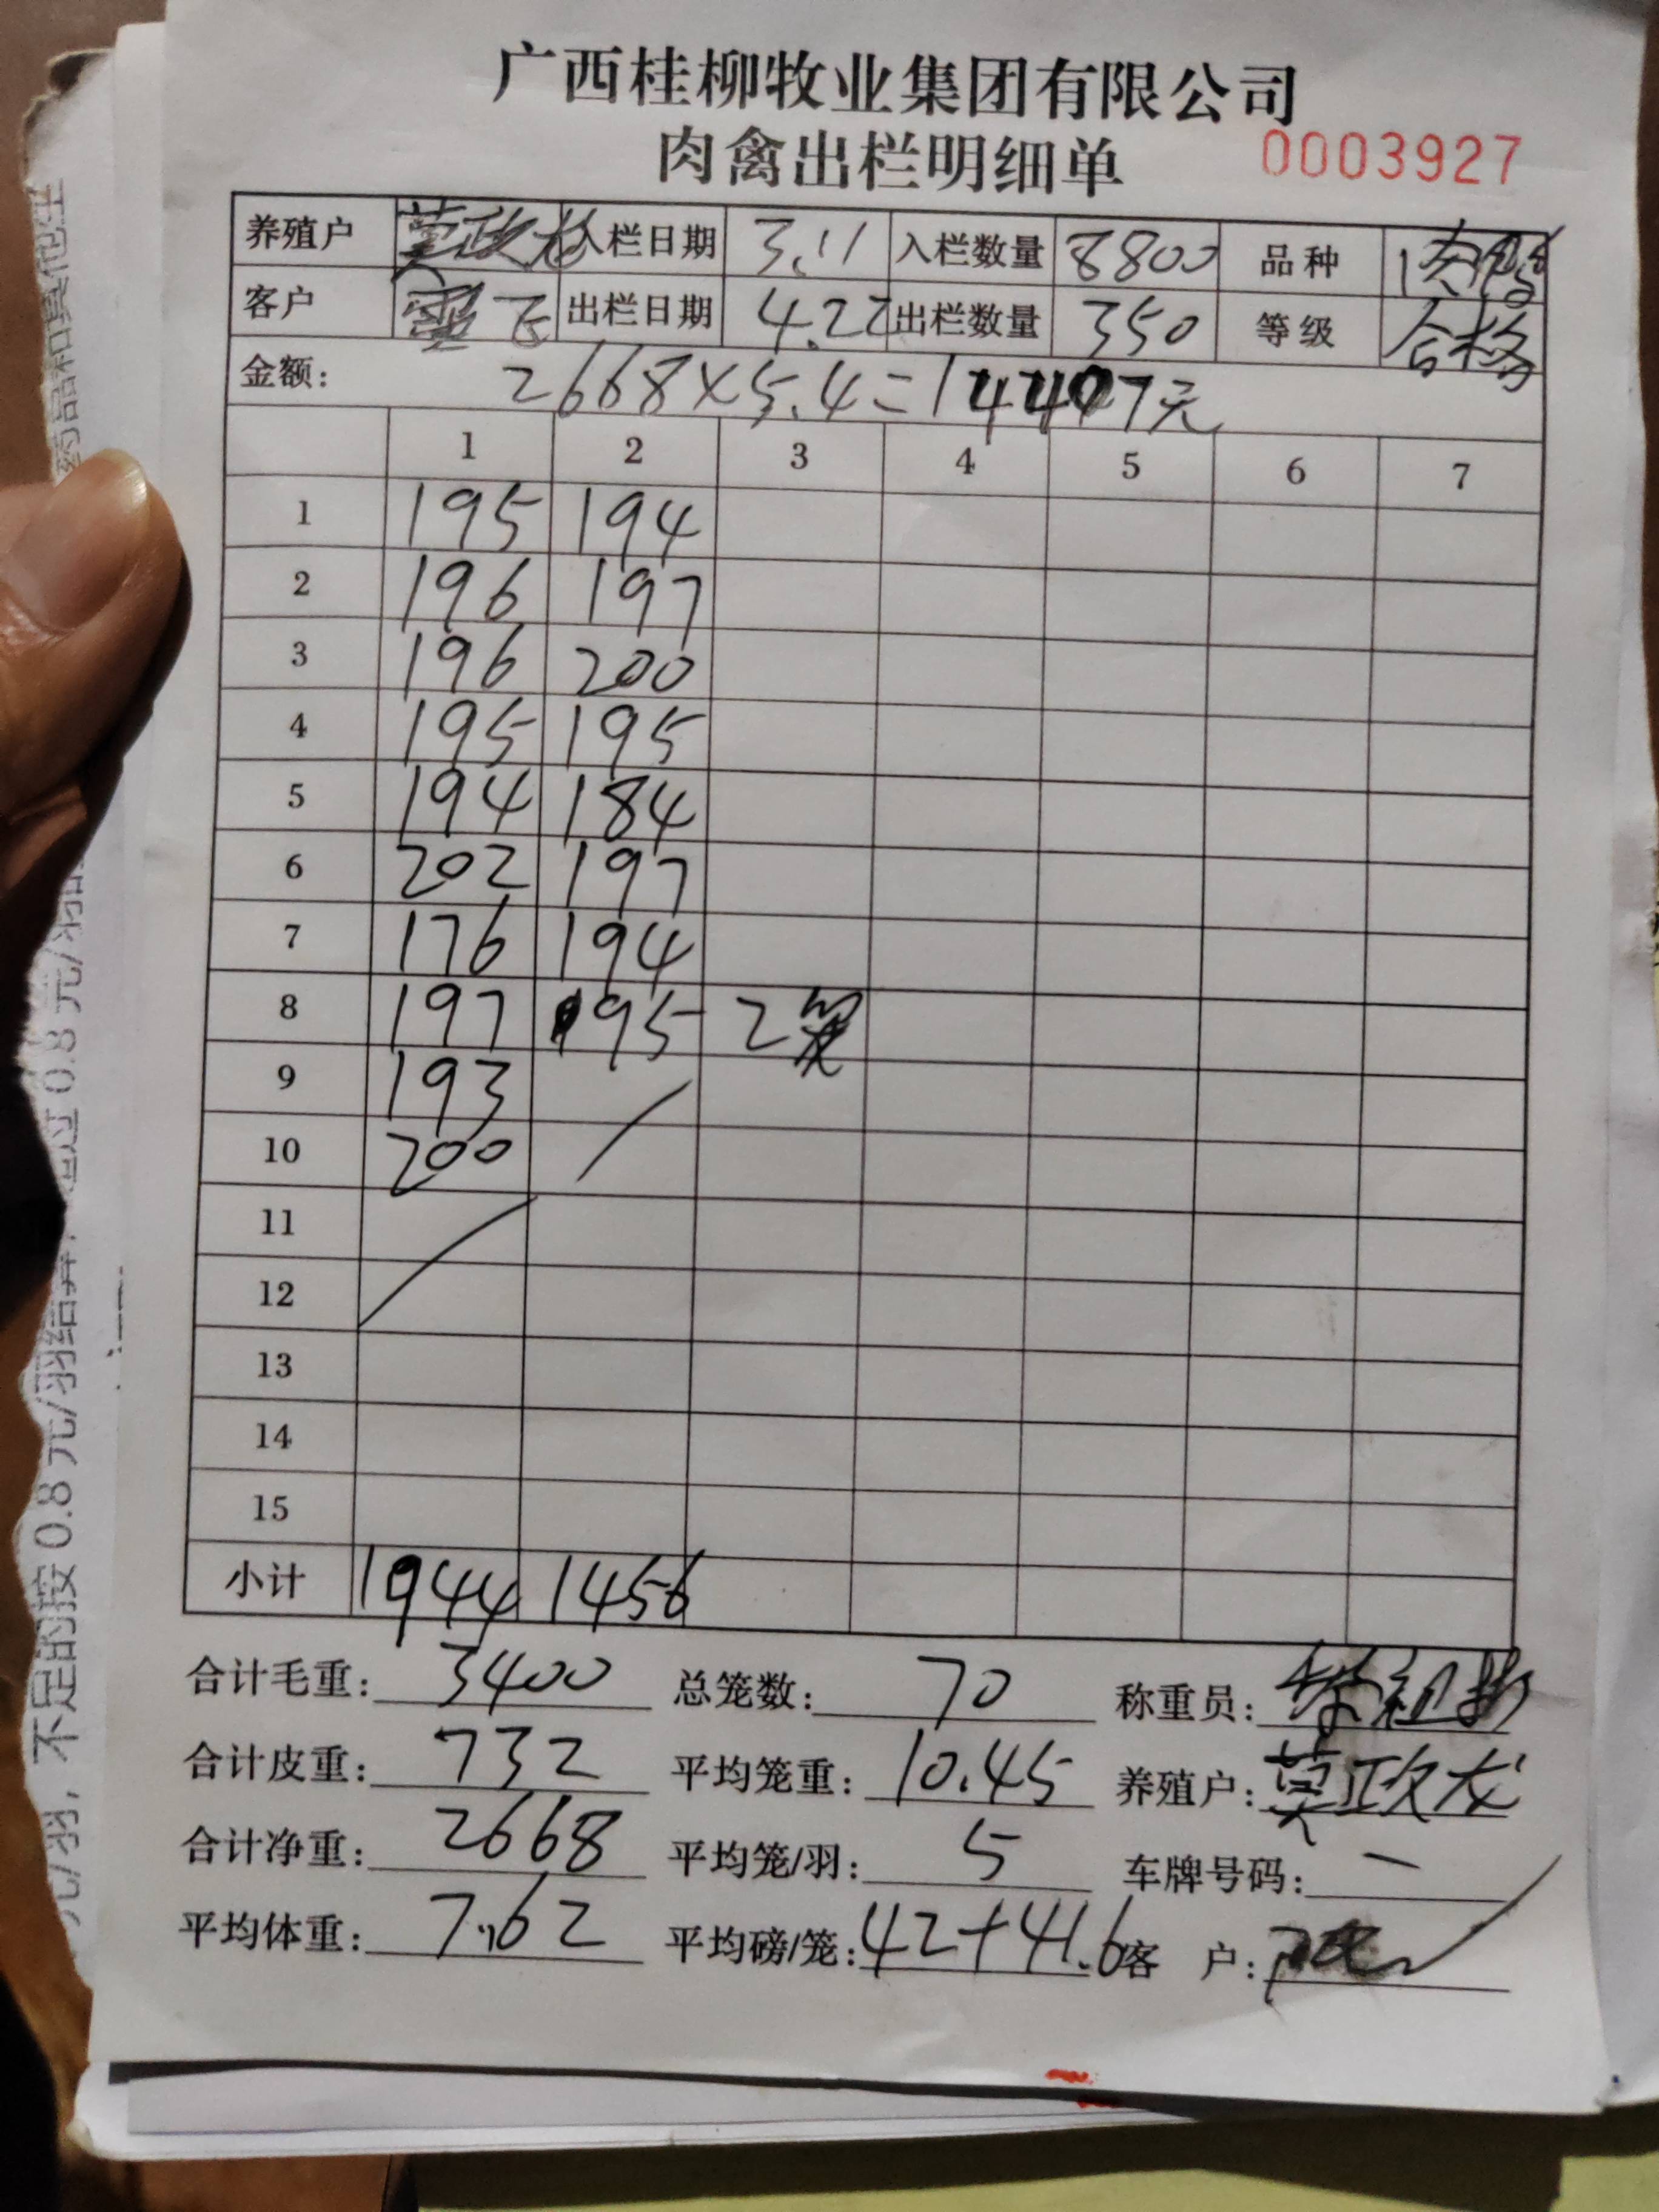 广西桂柳牧业集团有限公司
肉禽出栏明细单 0003927
养殖户 莫政龙 入栏日期 3.11 入栏数量 8800 品种 肉鸭
客户 飞 出栏日期 4.22 出栏数量 350 等级 合格
金额: 2668×5.4=14407元
1 2 3 4 5 6 7
1 195 194
2 196 197
3 196 200
4 195 195
5 194 184
6 202 197
7 176 194
8 197 195 2笼
9 193
10 200
11
12
13
14
15
小计 1944 1456
合计毛重: 3400 总笼数: 70 称重员:
合计皮重: 732 平均笼重: 10.45 养殖户: 莫政龙
合计净重: 2668 平均笼/羽: 5 车牌号码: 一
平均体重: 7.62 平均磅/笼: 42+41.6 客 户:
药品和其他往
元/羽，不足的按 0.8 元/羽结算，超过 0.8 元/羽